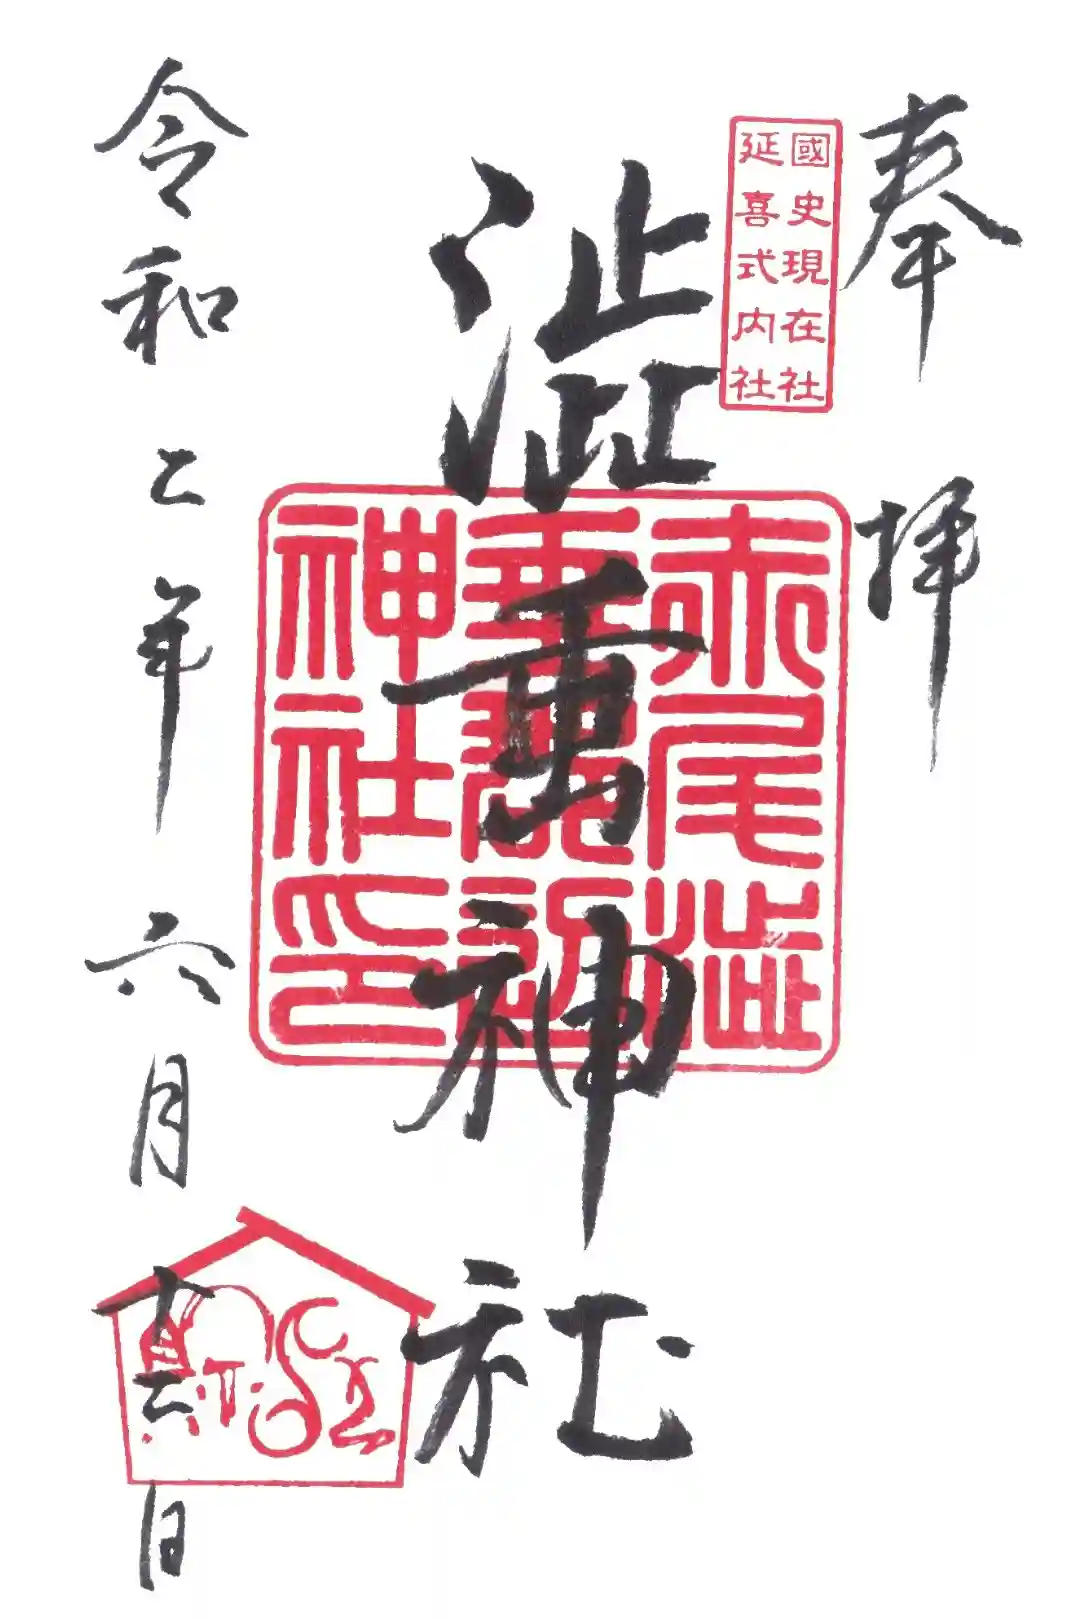 奉拝
國史現在社
延喜式内社
澁垂神社
赤尾澁
垂郡辺
神社印
令和二年六月十日